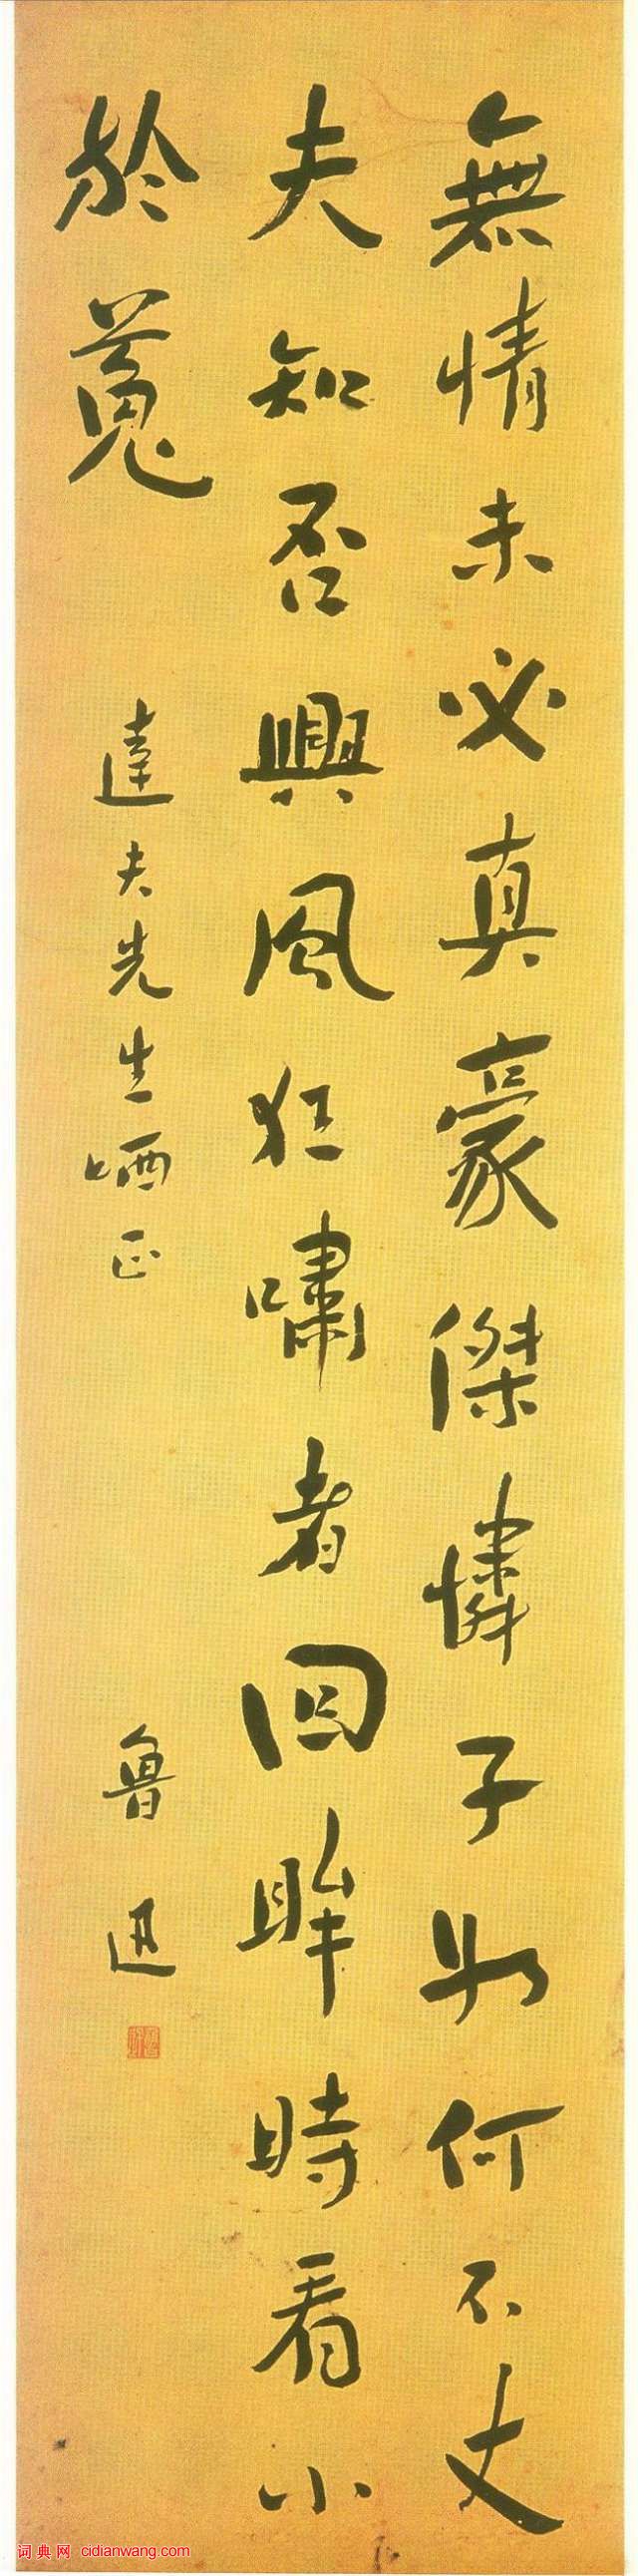 無情未必真豪傑憐子如何不丈
夫知否興風狂嘯者回眸時看小
於菟
達夫先生哂正
魯迅
词典网 cidianwang.com